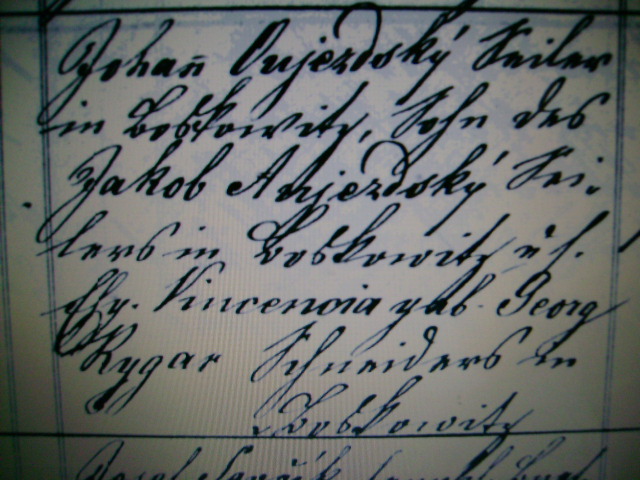 Johañ Aujezdský Seiler
in Boskowitz, Sohn des
Jakob Aujezdský Sei-
lers in Boskowitz u. s.
Ehg. Vincencia geb. Georg
Rygar Schneiders in
Boskowitz
Josef